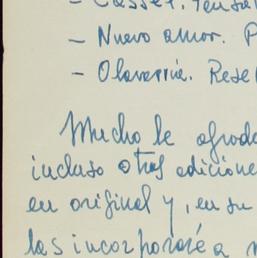 - Cassel. Ten
- Nuevo amor. P
- Olavarría. Rese
Mucho le agrade
incluso otras edicione
en original y, en su
las incorporaré a